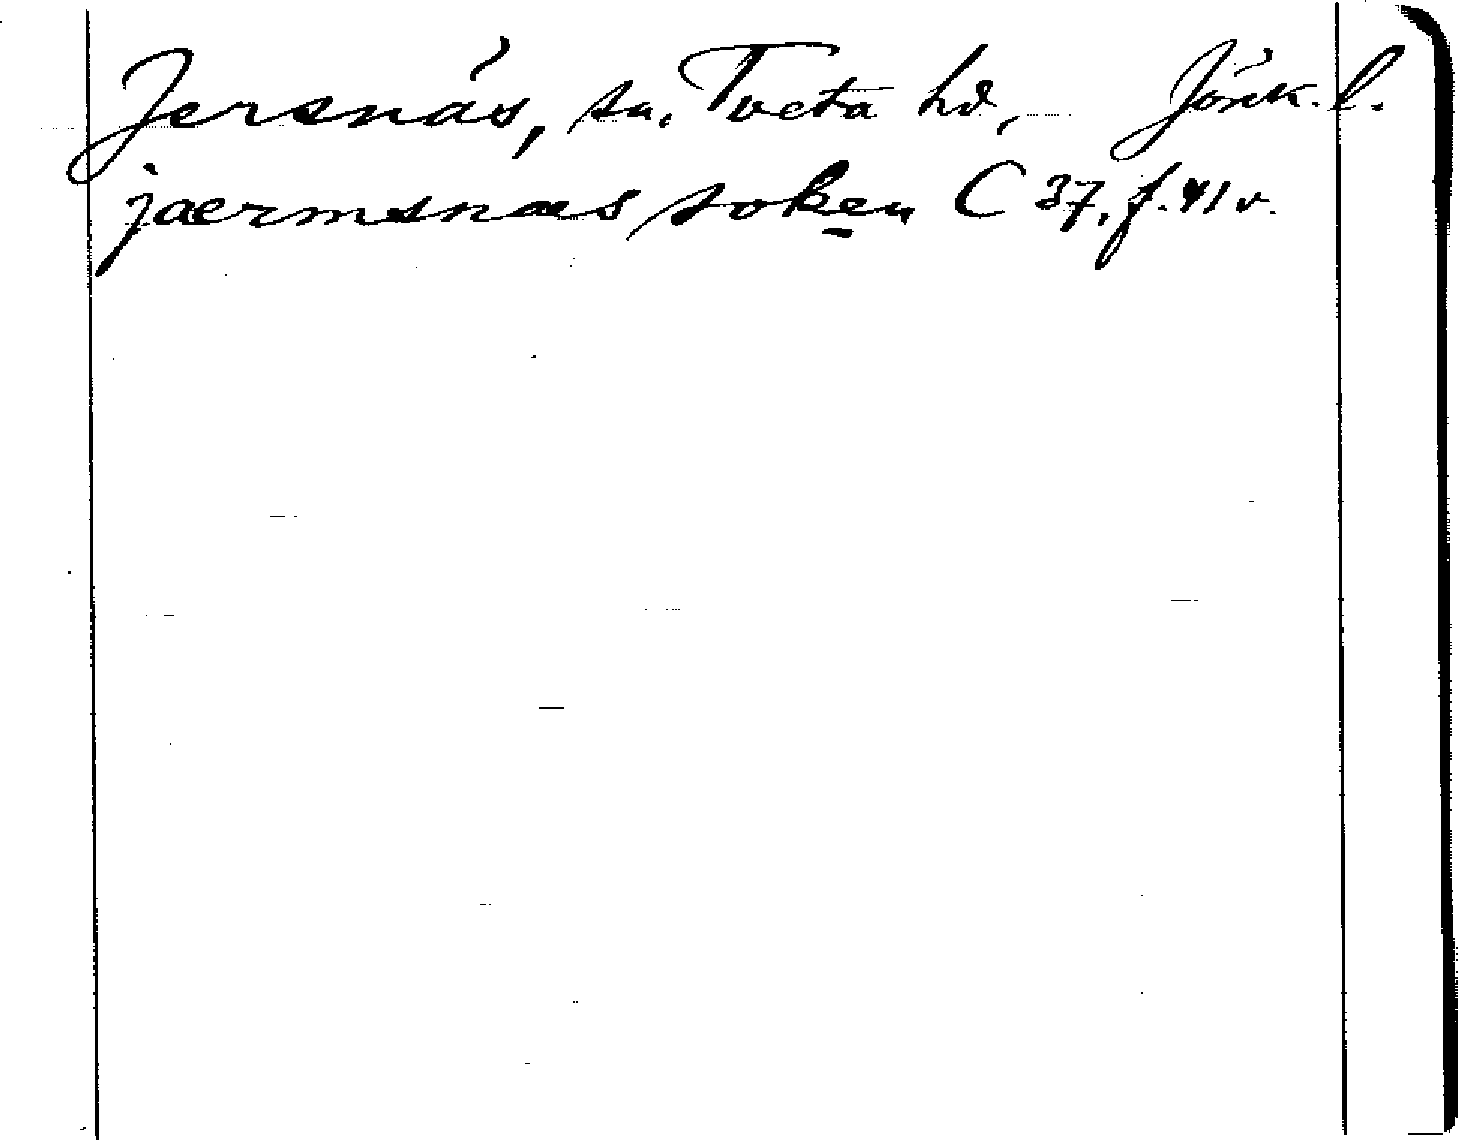 Jersnäs, sn. Tveta hd, Jönk. l.
jaermsnæs soken C 37, f. 41 v.